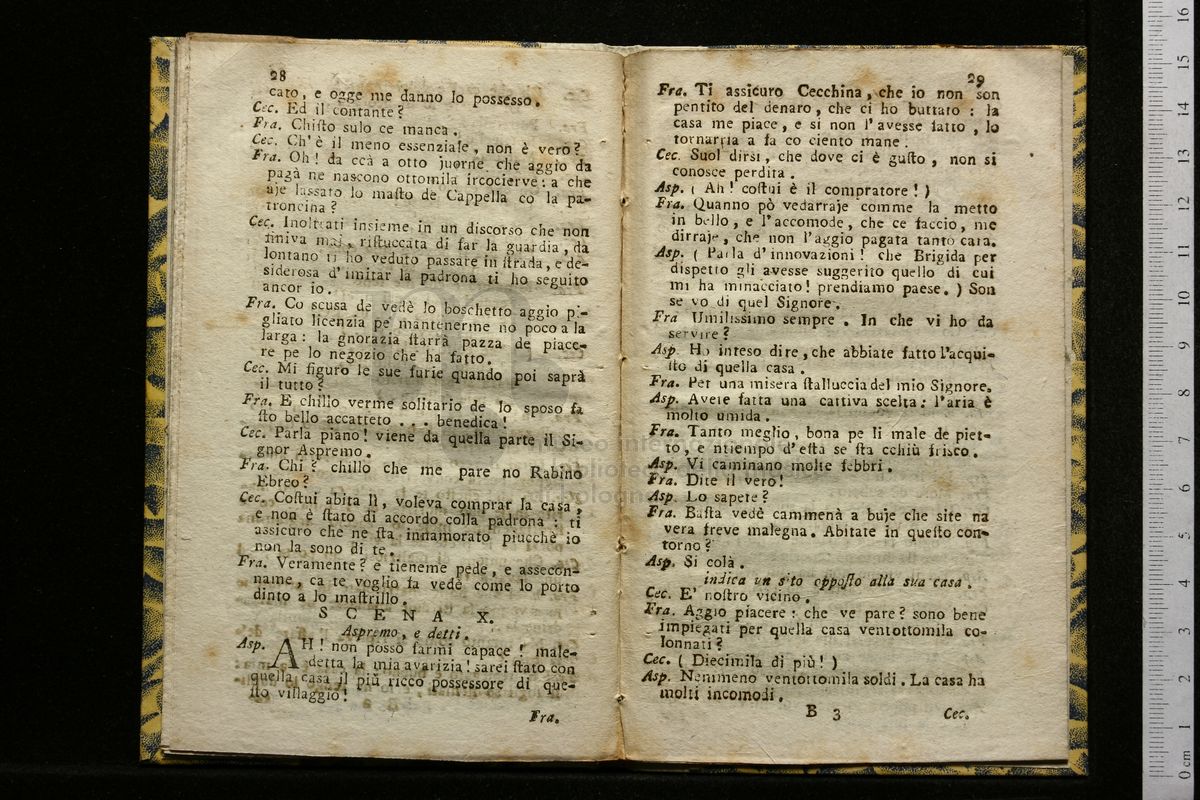 28
cato, e ogge me danno lo possesso.
Cec. Ed il contante?
Fra. Chiſto sulo ce manca.
Cec. Ch'è il meno essenziale, non è vero?
Fra. Oh! da ccà a otto juorne che aggio da
pagà ne nascono ottomila ircocierve: a che
aje lassato lo maſto de Cappella co la pa-
troncina?
Cec. Inoltrati insieme in un discorso che non
finiva mai, riſtuccata di far la guardia, da
lontano ti ho veduto passare in iſtrada, e de-
siderosa d'imitar la padrona ti ho seguito
ancor io.
Fra. Co scusa de vedè lo boschetto aggio pi-
gliato licenzia pe mantenerme no poco a la
larga: la gnorazia ſtarrà pazza de piace-
re pe lo negozio che ha fatto.
Cec. Mi figuro le sue furie quando poi saprà
il tutto?
Fra. E chillo verme solitario de lo sposo fa
ſto bello accatteto ... benedica!
Cec. Parla piano! viene da quella parte il Si-
gnor Aspremo.
Fra. Chi? chillo che me pare no Rabino
Ebreo?
Cec. Coſtui abita lì, voleva comprar la casa,
e non è ſtato di accordo colla padrona: ti
assicuro che ne ſta innamorato piucchè io
non la sono di te.
Fra. Veramente? e tieneme pede, e assecon-
name, ca te voglio fa vedè come lo porto
dinto a lo maſtrillo.
SCENA X.
Aspremo, e detti.
Asp. AH! non posso farmi capace! male-
detta la mia avarizia! sarei ſtato con
quella casa il più ricco possessore di que-
ſto villaggio!
Fra.
29
Fra. Ti assicuro Cecchina, che io non son
pentito del denaro, che ci ho buttato: la
casa me piace, e si non l'avesse fatto, lo
tornarria a fa co ciento mane:
Cec. Suol dirsi, che dove ci è guſto, non si
conosce perdita.
Asp. (Ah! coſtui è il compratore!)
Fra. Quanno pò vedarraje comme la metto
in bello, e l'accomode, che ce faccio, me
dirraje, che non l'aggio pagata tanto cara.
Asp. (Parla d'innovazioni! che Brigida per
dispetto gli avesse suggerito quello di cui
mi ha minacciato! prendiamo paese.) Son
se vo di quel Signore.
Fra Umilissimo sempre. In che vi ho da
servire?
Asp Ho inteso dire, che abbiate fatto l'acqui-
ſto di quella casa.
Fra. Per una misera ſtalluccia del mio Signore.
Asp. Avete fatta una cattiva scelta: l'aria è
molto umida.
Fra. Tanto meglio, bona pe li male de piet-
to, e ntiempo d'eſtà se ſta cchiù frisco.
Asp. Vi caminano molte febbri.
Fra. Dite il vero!
Asp. Lo sapete?
Fra. Baſta vedè cammenà a buje che site na
vera freve malegna. Abitate in queſto con-
torno?
Asp. Si colà.
indica un sito oppoſto alla sua casa.
Cec. E' noſtro vicino.
Fra. Aggio piacere: che ve pare? sono bene
impiegati per quella casa ventottomila co-
lonnati?
Cec. (Diecimila di più!)
Asp. Nemmeno ventottomila soldi. La casa ha
molti incomodi.
B 3
Cec.
0 cm 1 2 3 4 5 6 7 8 9 10 11 12 13 14 15 16